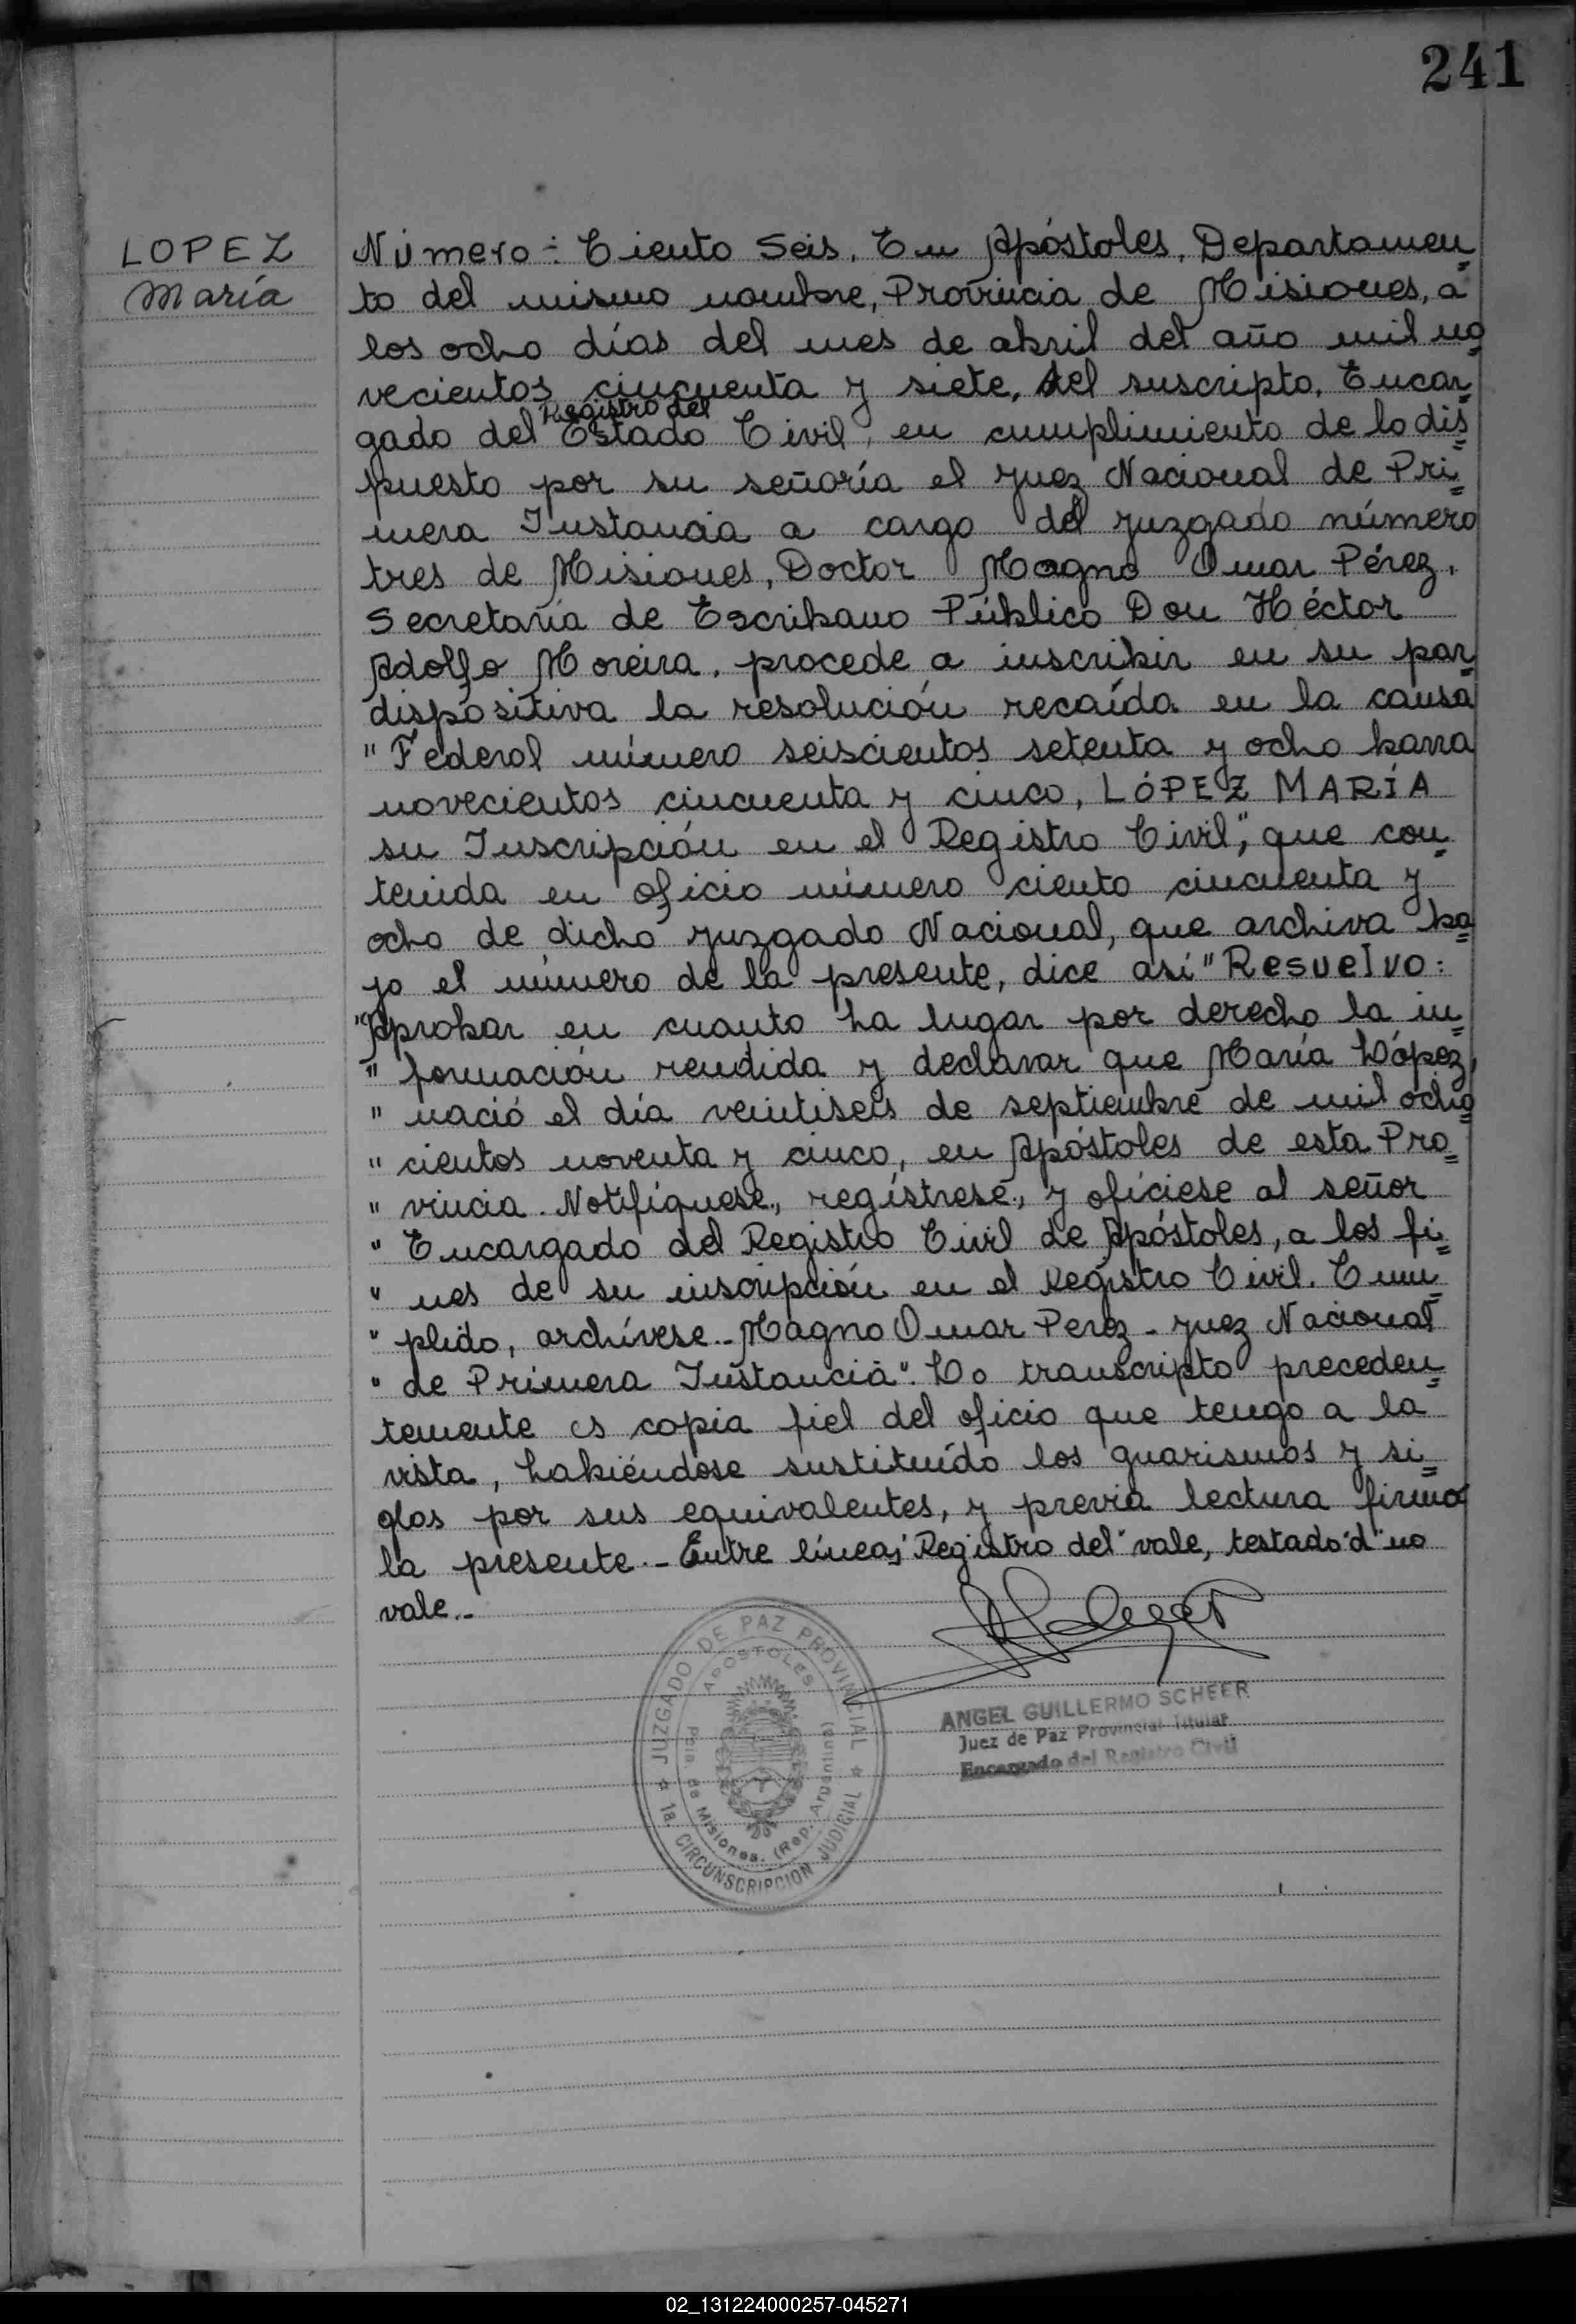 241
LOPEZ
María
Número: Ciento Seis. En Apóstoles, Departamen=
to del mismo nombre, Provincia de Misiones, a
los ocho días del mes de abril del año mil no
vecientos cincuenta y siete, del suscripto, Encar=
Registro del
gado del Estado Civil, en cumplimiento de lo dis=
puesto por su señoría el Juez Nacional de Pri=
mera Instancia a cargo del Juzgado número
tres de Misiones, Doctor Magno Omar Pérez,
Secretaría de Escribano Público Don Héctor
Adolfo Moreira, procede a inscribir en su par
dispositiva la resolución recaída en la causa
"Federal número seiscientos setenta y ocho barra
novecientos cincuenta y cinco, LÓPEZ MARÍA
su Inscripción en el Registro Civil", que con=
tenida en oficio número ciento cincuenta y
ocho de dicho Juzgado Nacional, que archiva ba=
jo el número de la presente, dice así "Resuelvo:
"Aprobar en cuanto ha lugar por derecho la in=
" formación rendida y declarar que María López,
" nació el día veintiseis de septiembre de mil ocho=
" cientos noventa y cinco, en Apóstoles de esta Pro=
" vincia. Notifíquese, regístrese, y ofíciese al señor
" Encargado del Registro Civil de Apóstoles, a los fi=
" nes de su inscripción en el Registro Civil. Cum=
" plido, archívese - Magno Omar Perez - Juez Nacional
" de Primera Instancia". Lo transcripto preceden=
temente es copia fiel del oficio que tengo a la
vista, habiéndose sustituído los guarismos y si=
glas por sus equivalentes, y previa lectura firmo
la presente.- Entre líneas "Registro del" vale, testado "d" no
vale.-
JUZGADO DE PAZ PROVINCIAL
APOSTOLES
Pcia. de Misiones. (Rep. Argentina)
1a. CIRCUNSCRIPCION JUDICIAL
ANGEL GUILLERMO SCHEER
Juez de Paz Provincial Titular
Encargado del Registro Civil
02_131224000257-045271